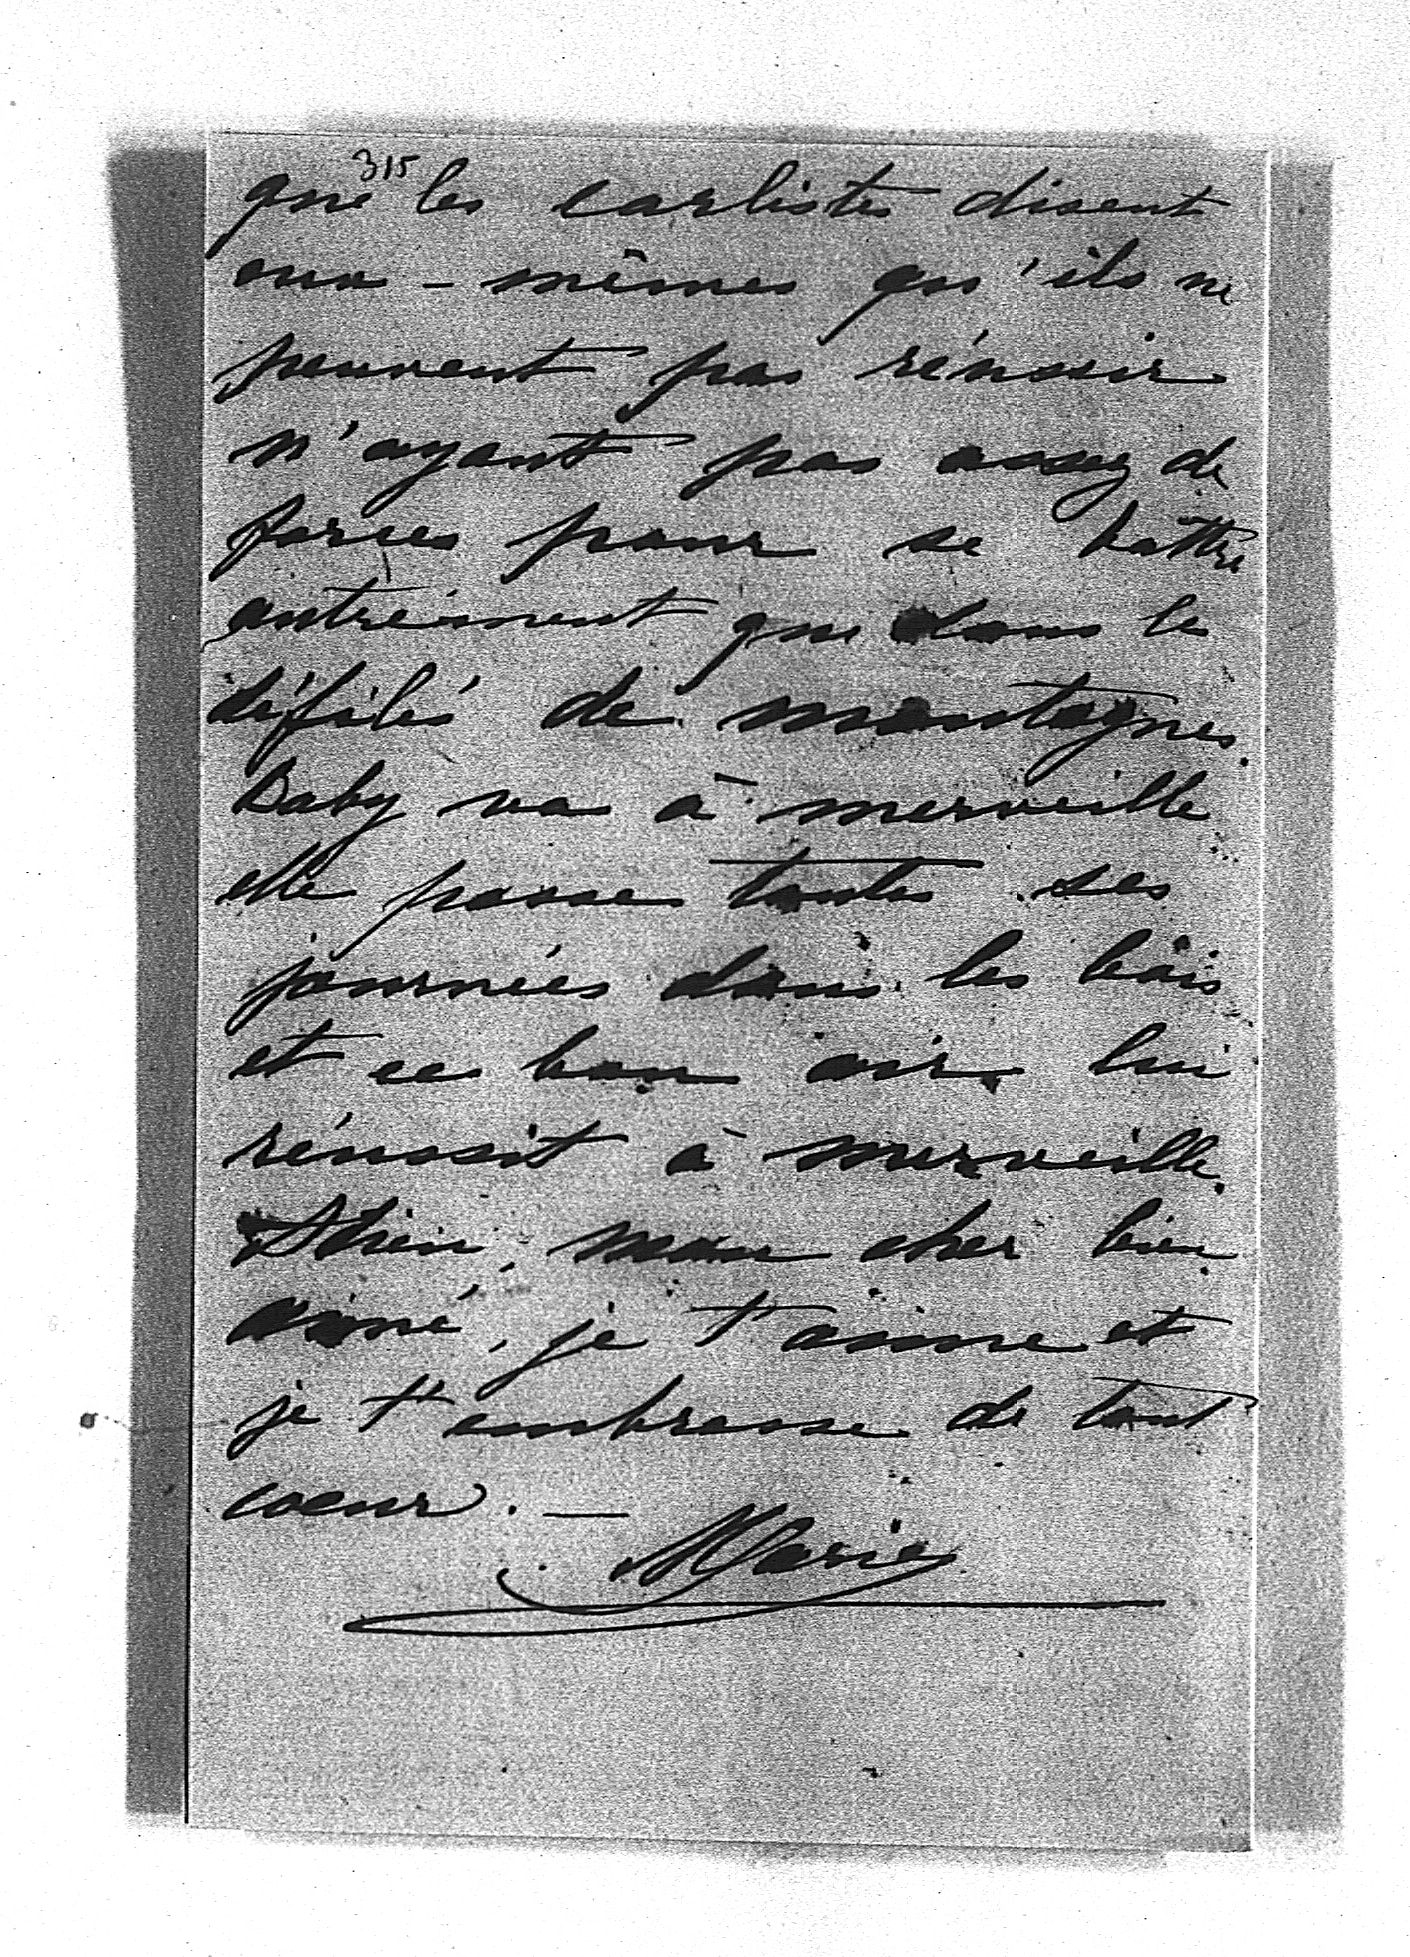 315
que les carlistes disent
eux-mêmes qu'ils ne
peuvent pas réussir
n'ayant pas assez de
forces pour se battre
autrement que dans les
défilés de montagnes.
Baby va à merveille
elle passe toutes ses
journées dans les bois
et ce bon air lui
réussit à merveille.
Adieu, mon cher bien
aimé, je t'aime et
je t'embrasse de tout
coeur. —
Marie